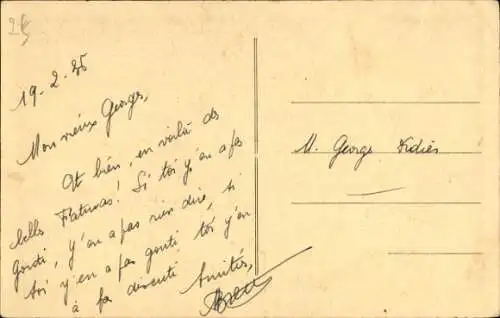 19-2-25
Mon vieux Georges,
Et bien, en voilà des
belles Faturas! Si toi y'en a pas
gouti, y'en a pas rien dire, si
toi y'en a pas gouti toi y'en
à pas descuti Amitiés,
M. George